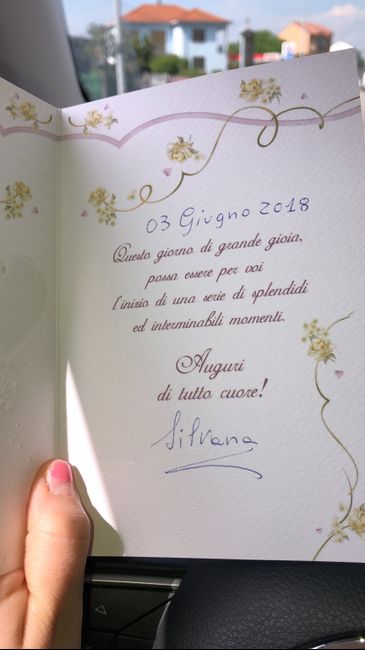 03 Giugno 2018
Questo giorno di grande gioia,
possa essere per voi
l'inizio di una serie di splendidi
ed interminabili momenti.
Auguri
di tutto cuore!
Silvana